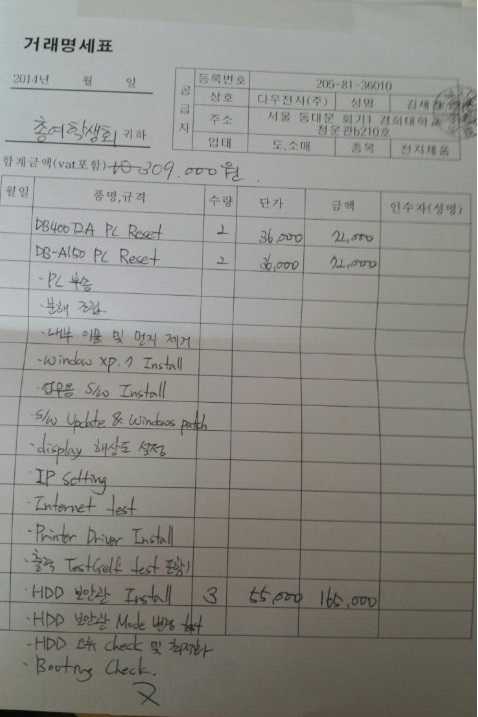 거래명세표
2014년 월 일
공급자
등록번호 205-81-36010
상호 다우전사(주) 성명
주소 서울 동대문 회기1 경희대학교
청운관b210호
업태 도,소매 종목 전자제품
총여학생회 귀하
합계금액(vat포함) 309.000원
월일 품명,규격 수량 단가 금액 인수자(성명)
DB400 PC Reset 2 36,000 72,000
DB-A150 PC Reset 2 36,000 72,000
·PC 부숭
·분해 조립
·내부 이물 및 먼지 제거
·Window XP.7 Install
·업무용 S/W Install
·S/W Update & Windows patch
·display 해상도 설정
·IP Setting
·Internet test
·Printer Driver Install
·출력 Test(self test 포함)
·HDD 보안관 Install 3 55,000 165,000
·HDD 보안관 Mode 변경 test
·HDD check 및 최적화
·Booting Check.